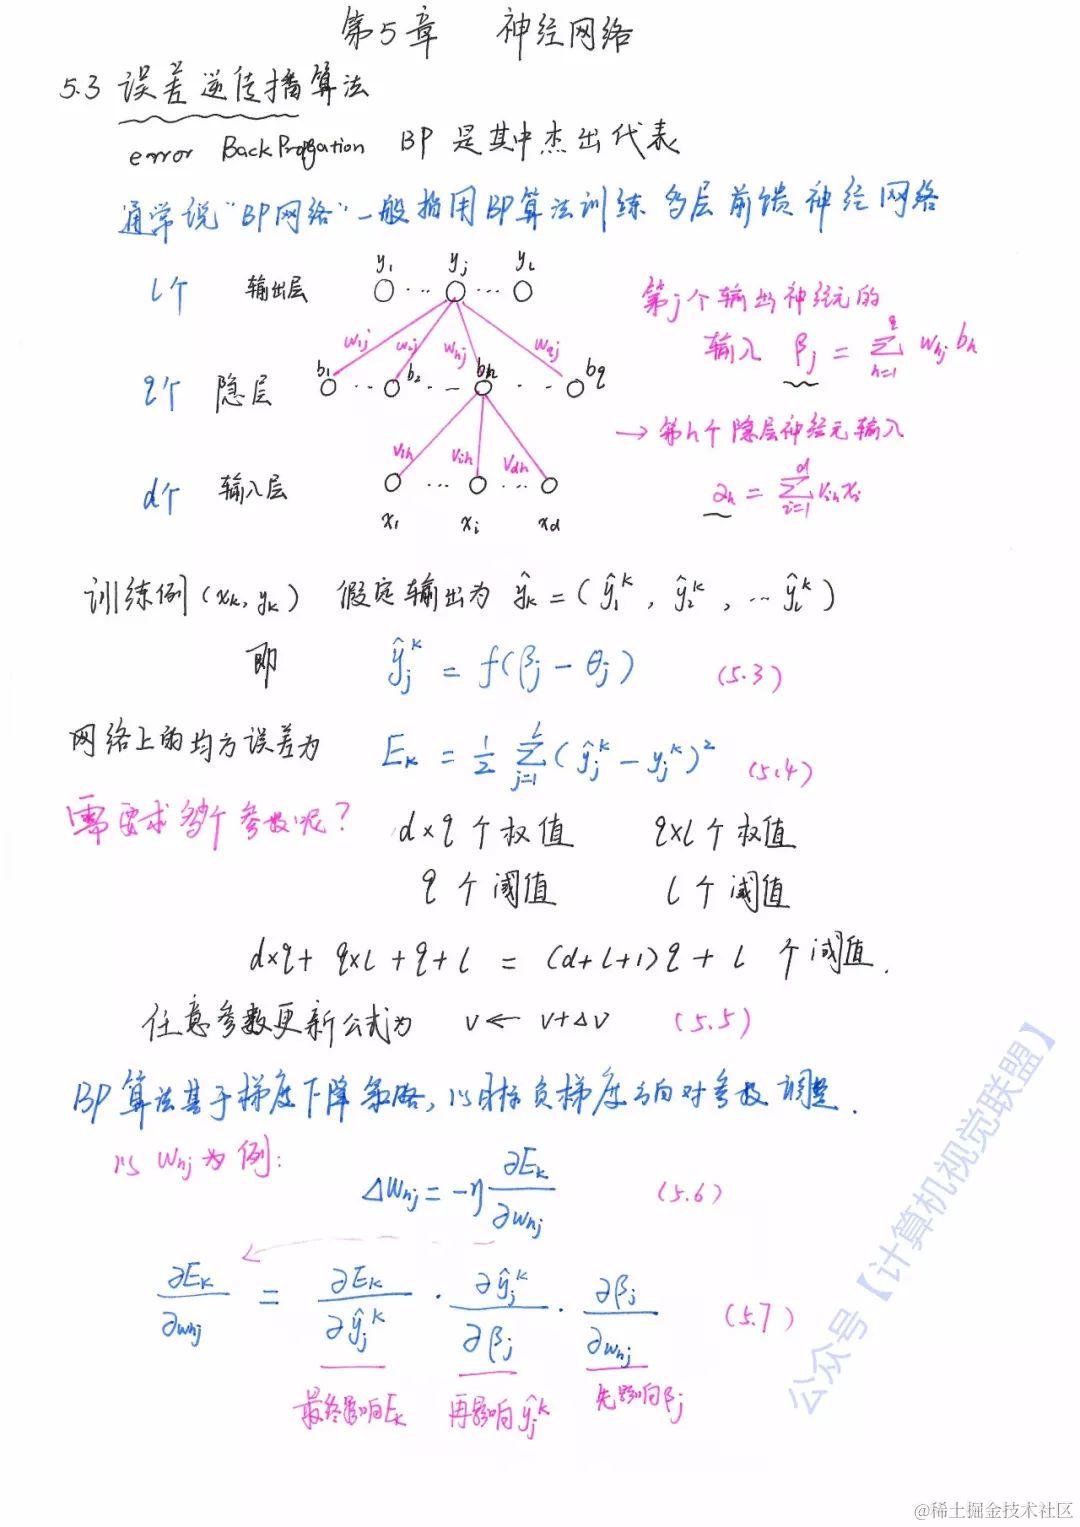 第5章 神经网络
5.3 误差逆传播算法
error BackPropagation BP 是其中杰出代表
通常说"BP网络"一般指用BP算法训练多层前馈神经网络
l个 输出层 y₁ ... yⱼ ... yₗ
第j个输出神经元的
w₁ⱼ w₂ⱼ wₕⱼ w_qj
输入 βⱼ = Σ_{h=1}^{q} wₕⱼ bₕ
q个 隐层 b₁ ... b₂ ... bₕ ... b_q
→ 第h个隐层神经元输入
v₁ₕ vᵢₕ v_dh
αₕ = Σ_{i=1}^{d} vᵢₕ xᵢ
d个 输入层
x₁ ... xᵢ ... x_d
训练例(xₖ, yₖ) 假定输出为 ŷₖ = (ŷ₁ᵏ, ŷ₂ᵏ, ... ŷₗᵏ)
即 ŷⱼᵏ = f(βⱼ - θⱼ) (5.3)
网络上的均方误差为 Eₖ = 1/2 Σ_{j=1}^{l} (ŷⱼᵏ - yⱼᵏ)² (5.4)
需要求多少个参数呢? d×q 个权值 q×l 个权值
q 个阈值 l 个阈值
d×q + q×l + q + l = (d+l+1)q + l 个阈值.
任意参数更新公式为 v ← v+Δv (5.5)
BP算法基于梯度下降策略,以目标负梯度方向对参数调整.
以 wₕⱼ 为例:
Δwₕⱼ = -η ∂Eₖ/∂wₕⱼ (5.6)
∂Eₖ/∂wₕⱼ = ∂Eₖ/∂ŷⱼᵏ · ∂ŷⱼᵏ/∂βⱼ · ∂βⱼ/∂wₕⱼ (5.7)
最终影响Eₖ 再影响ŷⱼᵏ 先影响βⱼ
公众号【计算机视觉联盟】
@稀土掘金技术社区